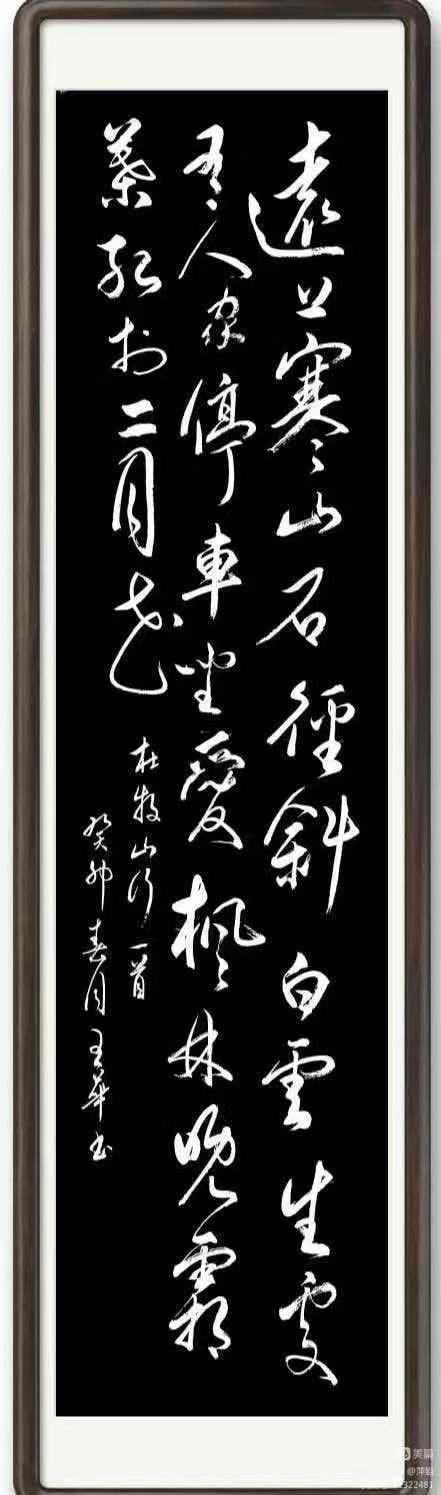 遠上寒山石徑斜白雲生處
有人家停車坐愛楓林晚霜
葉紅於二月花
杜牧山行一首
癸卯春月王華書
美篇
@萍姐
322481